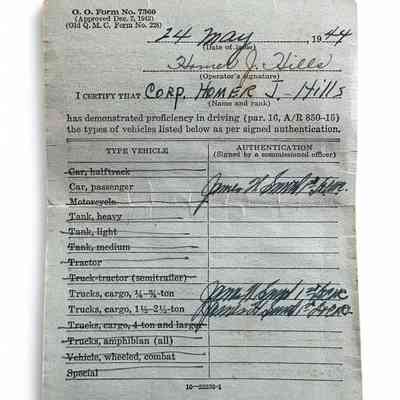 O. O. Form No. 7360
(Approved Dec. 7, 1942)
(Old Q. M. C. Form No. 228)
24 May 1944
(Date of issue)
Homer J. Hills
(Operator's signature)
I CERTIFY THAT Corp. Homer J. Hills
(Name and rank)
has demonstrated proficiency in driving (par. 16, A/R 850-15)
the types of vehicles listed below as per signed authentication.
TYPE VEHICLE AUTHENTICATION
(Signed by a commissioned officer)
Car, halftrack
Car, passenger James H 1st
Motorcycle
Tank, heavy
Tank, light
Tank, medium
Tractor
Truck-tractor (semitrailer)
Trucks, cargo, ¼-¾-ton 1st
Trucks, cargo, 1½-2½-ton James H 1st
Trucks, cargo, 4-ton and larger
Trucks, amphibian (all)
Vehicle, wheeled, combat
Special